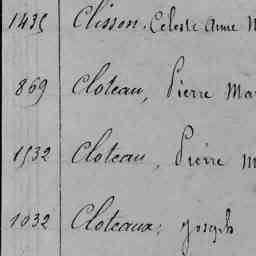 1435 Clisson, Celeste Anne
869 Cloteau, Pierre Mar
1532 Cloteau, Pierre M
1032 Cloteaux, Joseph